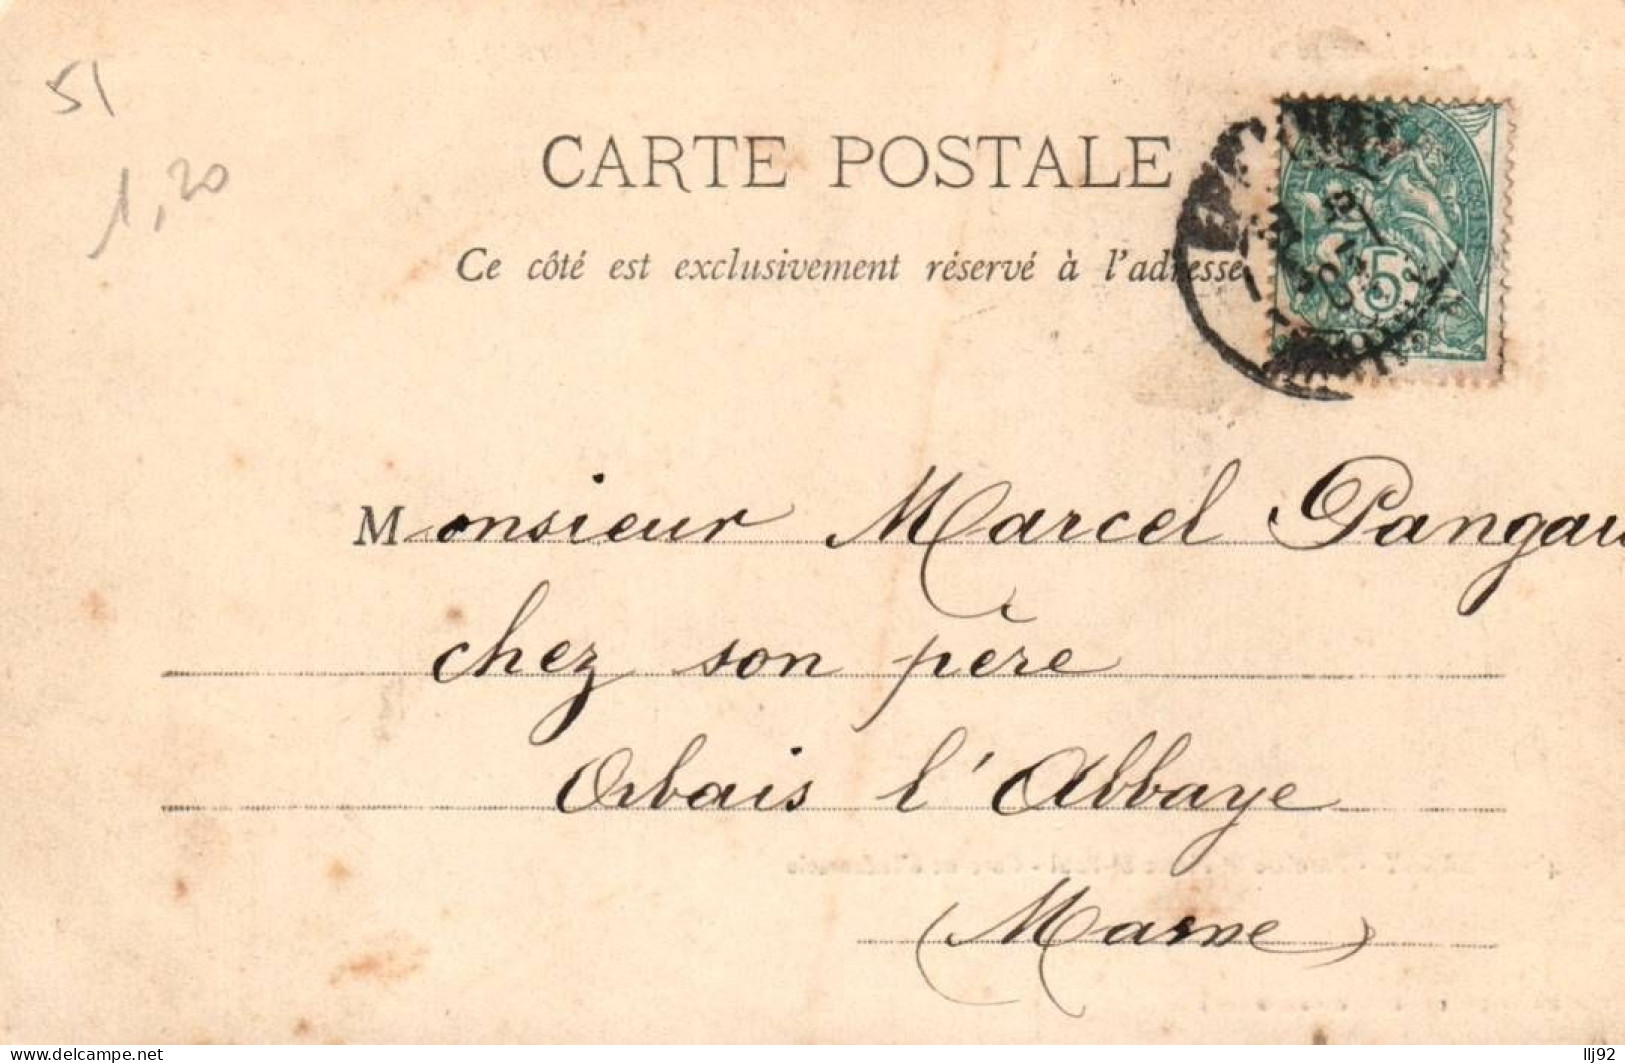 51
1,20
CARTE POSTALE
Ce côté est exclusivement réservé à l'adresse
5
Monsieur Marcel Pangau
chez son père
Orbais l'Abbaye
(Marne)
https://www.delcampe.net
llj92